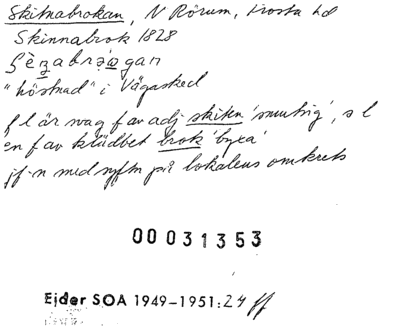 Skitnabrokan, N Rörum, Frosta hd
Skinnabrok 1828
"höstnad" i Vägasked
f l är svag f av adj skiten 'smutsig', s l
en f av klädbet brok 'byxa'
jf-n med syftn på lokalens omkrets
00031353
Ejder SOA 1949-1951:24 ff